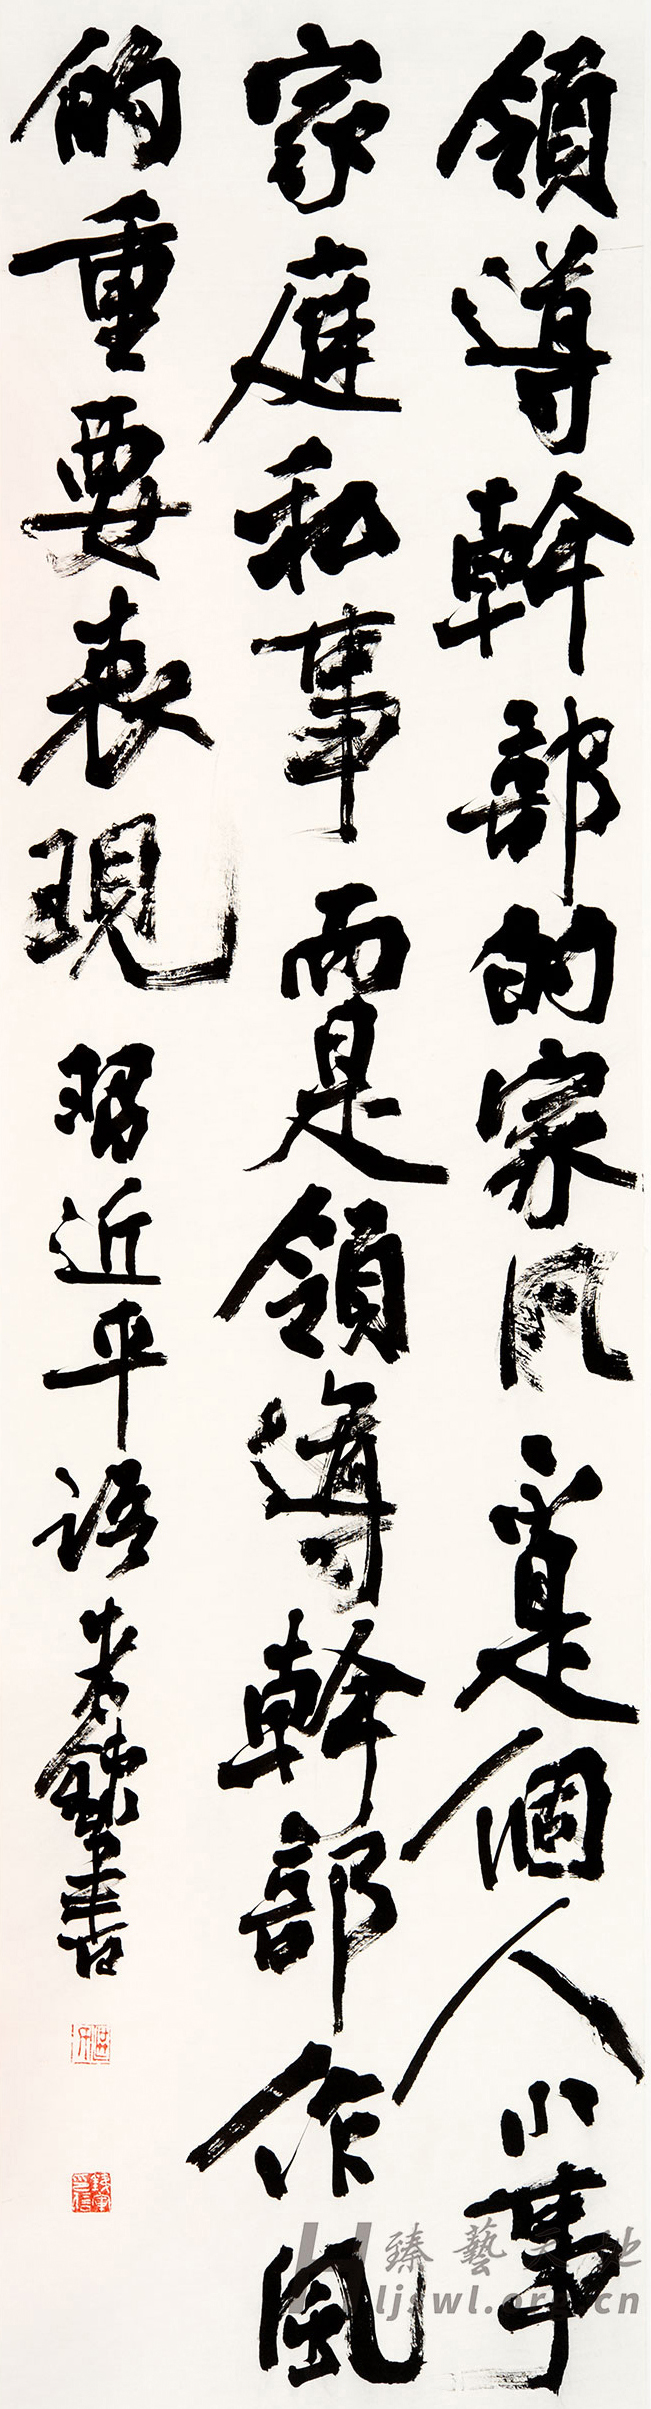 領導幹部的家风不是個人小事
家庭私事而是領導幹部作風
的重要表現 習近平語
臻藝天地
hljswl.org.cn